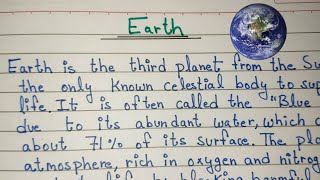 Earth
Earth is the third planet from the Su
the only known celestial body to sup
life. It is often called the "Blue
due to its abundant water, which c
about 71% of its surface. The pla
atmosphere, rich in oxygen and nitrog